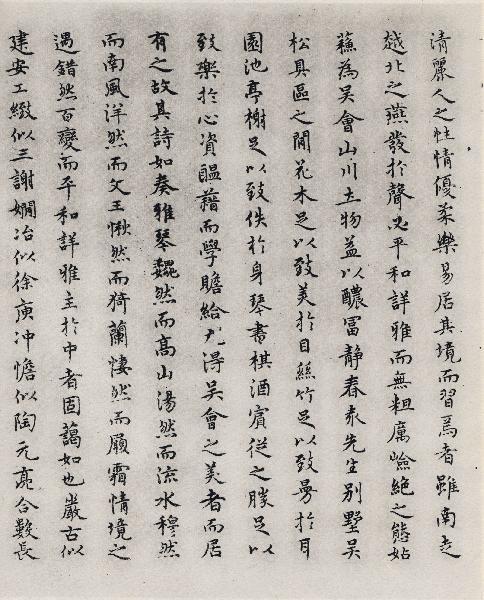 清麗人之性情優柔樂易居其境而習焉者雖南走
越北之燕發於聲必平和詳雅而無粗厲噍絕之態姑
蘓為吴會山川土物益以醲冨靜春袁先生别墅吴
松具區之間花木足以致美於目絲竹足以致曼於耳
園池亭榭足以致佚於身琴書棋酒賓從之勝足以
致樂於心資醖藉而學贍給尤淂吴會之美者而居
有之故其詩如奏雅琴巍然而髙山湯然而流水穆然
而南風洋然而文王愀然而猗蘭悽然而履霜情境之
遇錯然百變而平和詳雅主於中者固藹如也嚴古似
建安工緻似三謝嫺冶似徐庾冲憺似陶元亮合數長